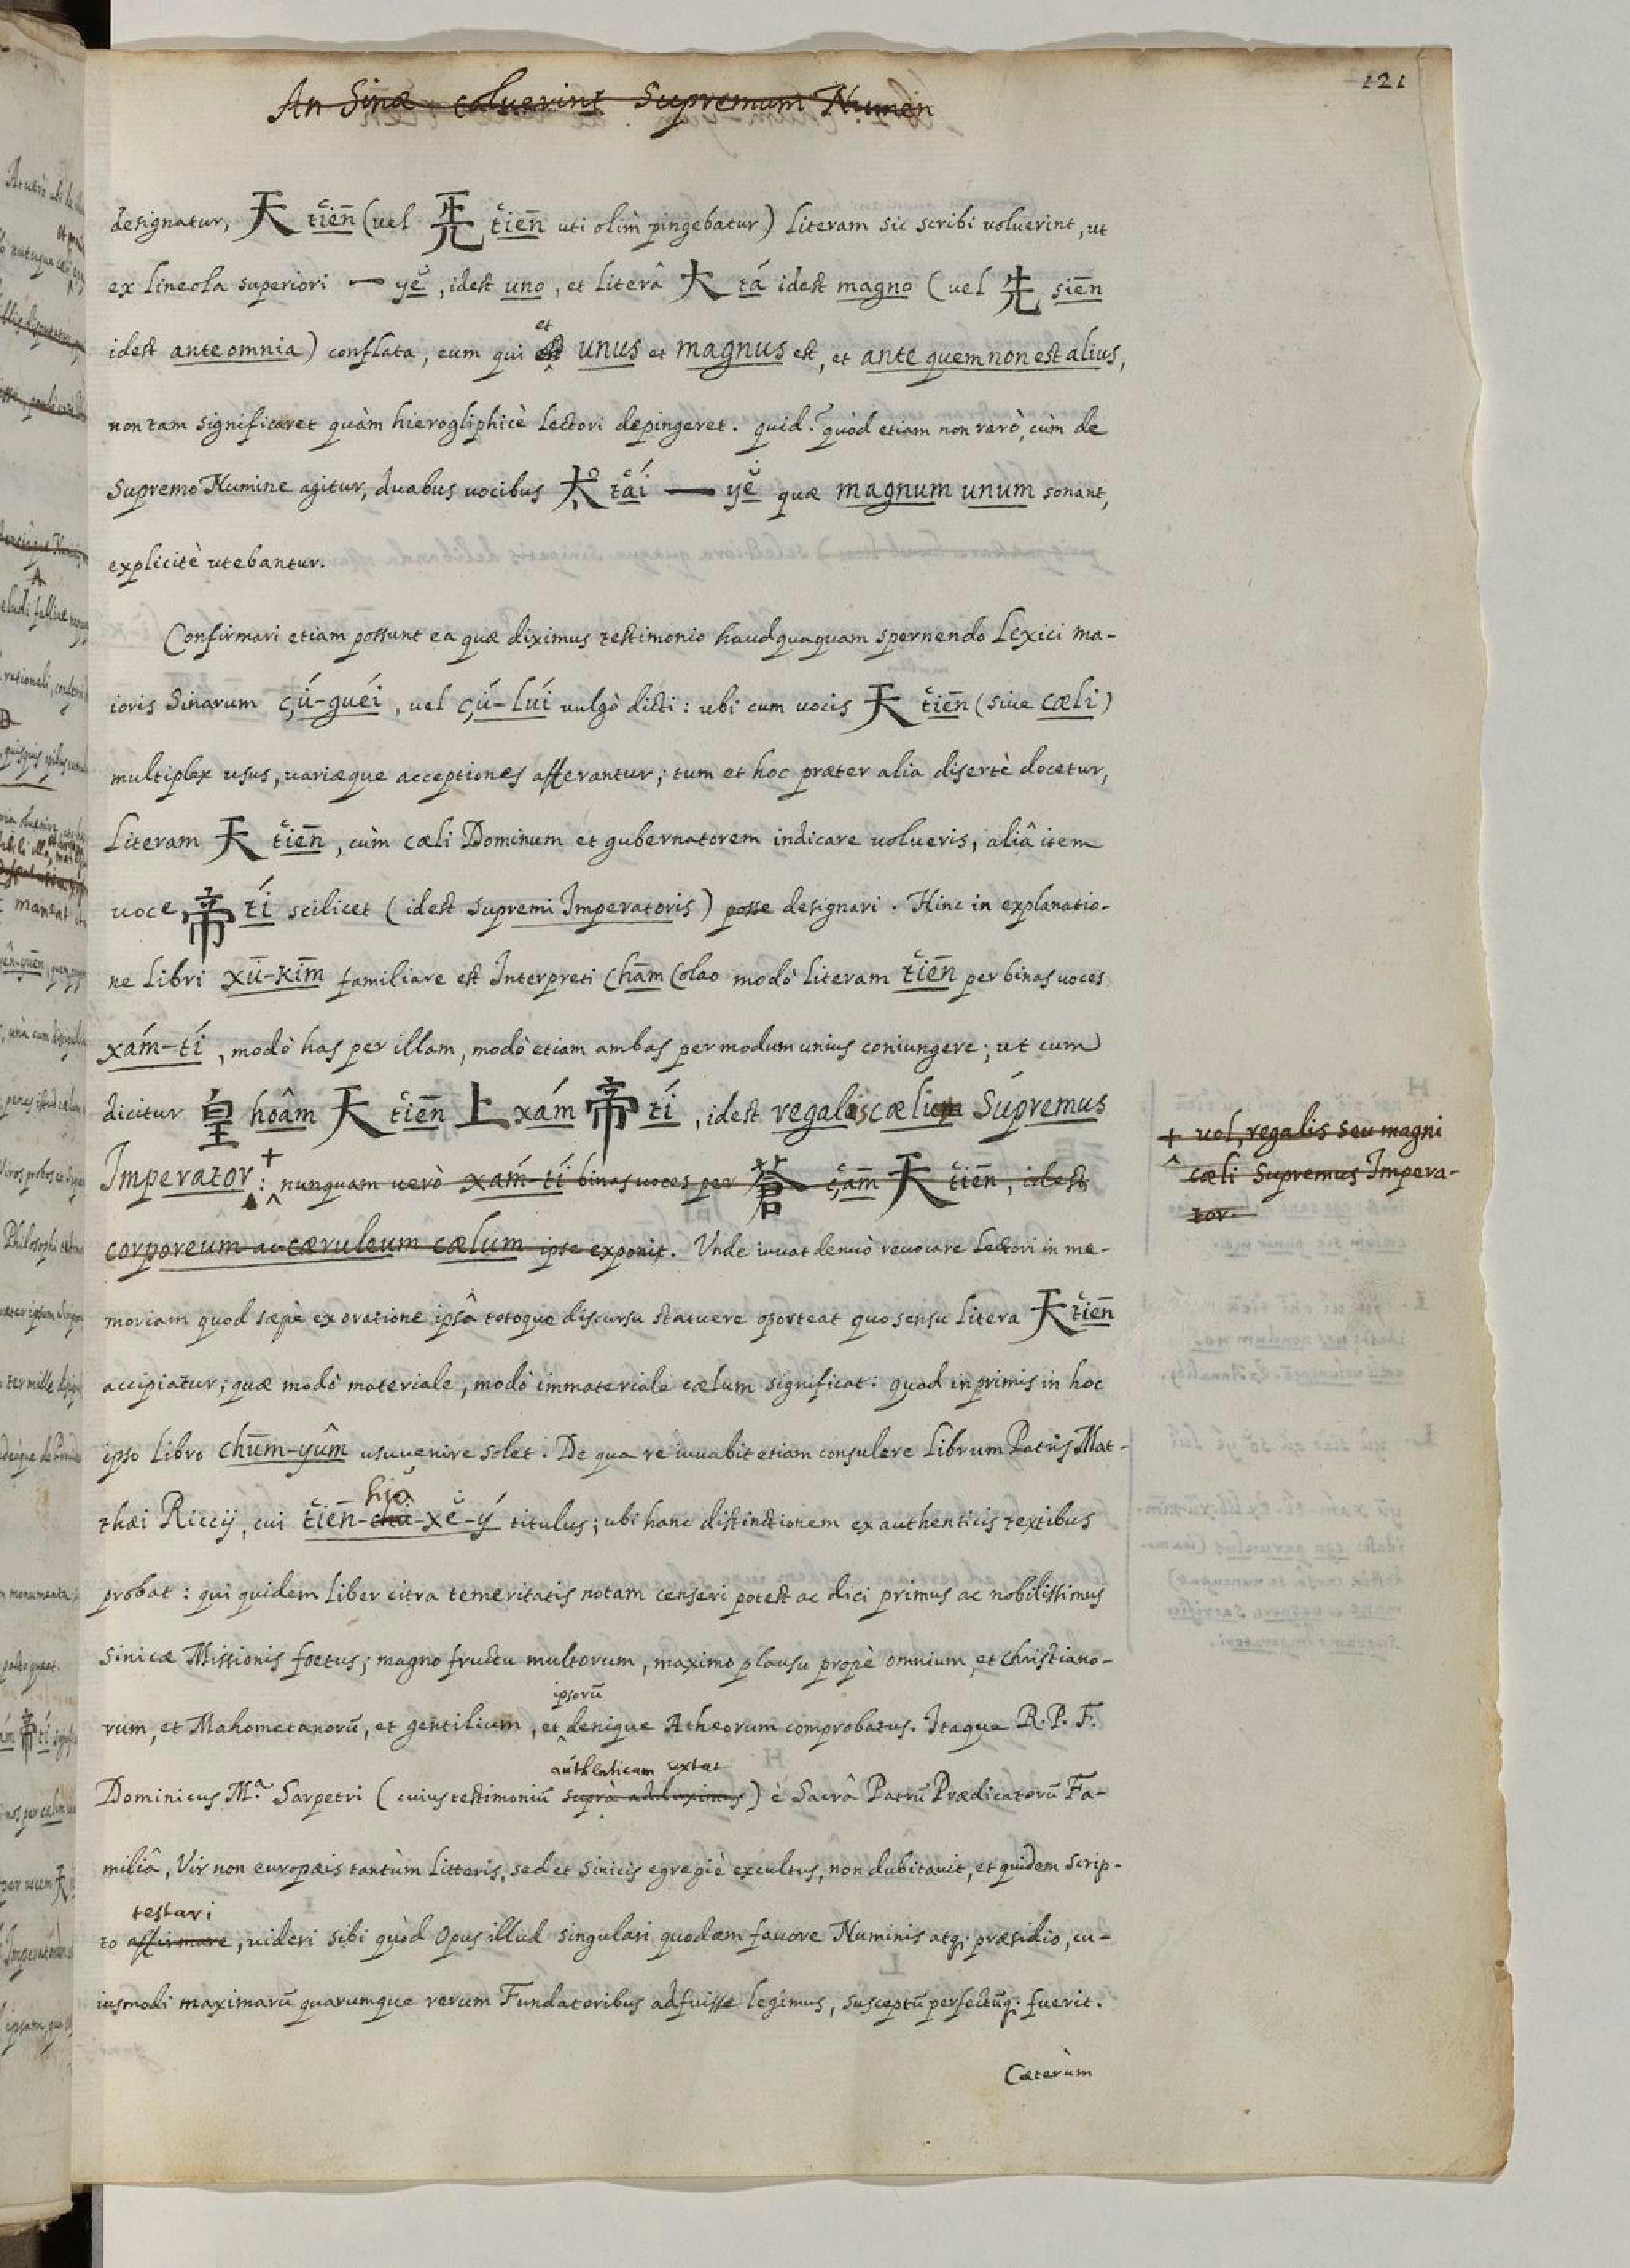 An Sinæ coluerint Supremum Numen
121
designatur, 天 tiēn (vel 兲 tiēn uti olim pingebatur) literam sic scribi voluerint, ut
ex lineola superiori 一 yě, idest uno, et literâ 大 tá idest magno (vel 先 siēn
idest ante omnia) conflata, eum qui et unus et magnus est, et ante quem non est alius,
non tam significaret quàm hierogliphicè lectori depingeret. quid? quòd etiam non rarò, cùm de
Supremo Numine agitur, duabus vocibus 太 tái 一 yě quæ magnum unum sonant,
explicitè utebantur.
Confirmari etiam possunt ea quæ diximus testimonio haudquaquam spernendo Lexici ma-
ioris Sinarum çú-guéi, vel çú-luí vulgò dicti: ubi cum vocis 天 tiēn (sive cæli)
multiplex usus, variæque acceptiones afferantur; tum et hoc præter alia disertè docetur,
Literam 天 tiēn, cùm cæli Dominum et gubernatorem indicare volueris, aliâ item
voce 帝 tí scilicet (idest supremi Imperatoris) posse designari. Hinc in explanatio-
ne libri xū-kīm familiare est Interpreti Chām Colao modò literam tiēn per binas voces
xám-tí, modò has per illam, modò etiam ambas per modum unius coniungere; ut cum
dicitur 皇 hoâm 天 tiēn 上 xám 帝 tí, idest regalis cæli Supremus
Imperator + : nunquam verò xám-tí binas voces per 蒼 çām 天 tiēn, idest
+ vel, regalis seu magni
cæli Supremus Impera-
tor.
corporeum ac cæruleum cælum ipse exponit. Unde iuvat denuò revocare lectori in me-
moriam quod sæpè ex oratione ipsâ totoque discursu statuere oporteat quo sensu litera 天 tiēn
accipiatur; quæ modò materiale, modò immateriale cælum significat: quod inprimis in hoc
ipso libro chūm-yûm usuvenire solet. De qua re iuvabit etiam consulere librum Patris Mat-
thæi Riccij, cui tiēn-chù-xě-ý titulus; ubi hanc distinctionem ex authenticis textibus
probat: qui quidem liber citra temeritatis notam censeri potest ac dici primus ac nobilissimus
sinicæ Missionis foetus; magno fructu multorum, maximo plausu propè omnium, et Christiano-
ipsorū
rum, et Mahometanorū, et gentilium, et denique Atheorum comprobatus. Itaque R. P. F.
authenticum extat
Dominicus M.ª Sarpetri (cuius testimoniū suprà adduximus) è Sacrâ Patrū Prædicatorū Fa-
miliâ, Vir non europæis tantùm litteris, sed et sinicis egregiè excultus, non dubitavit, et quidem scrip-
testari
to affirmare, videri sibi quòd Opus illud singulari quodam favore Numinis atq; præsidio, cu-
iusmodi maximarū quarumque rerum Fundatoribus adfuisse legimus, susceptū perfectūq; fuerit.
Cæterùm